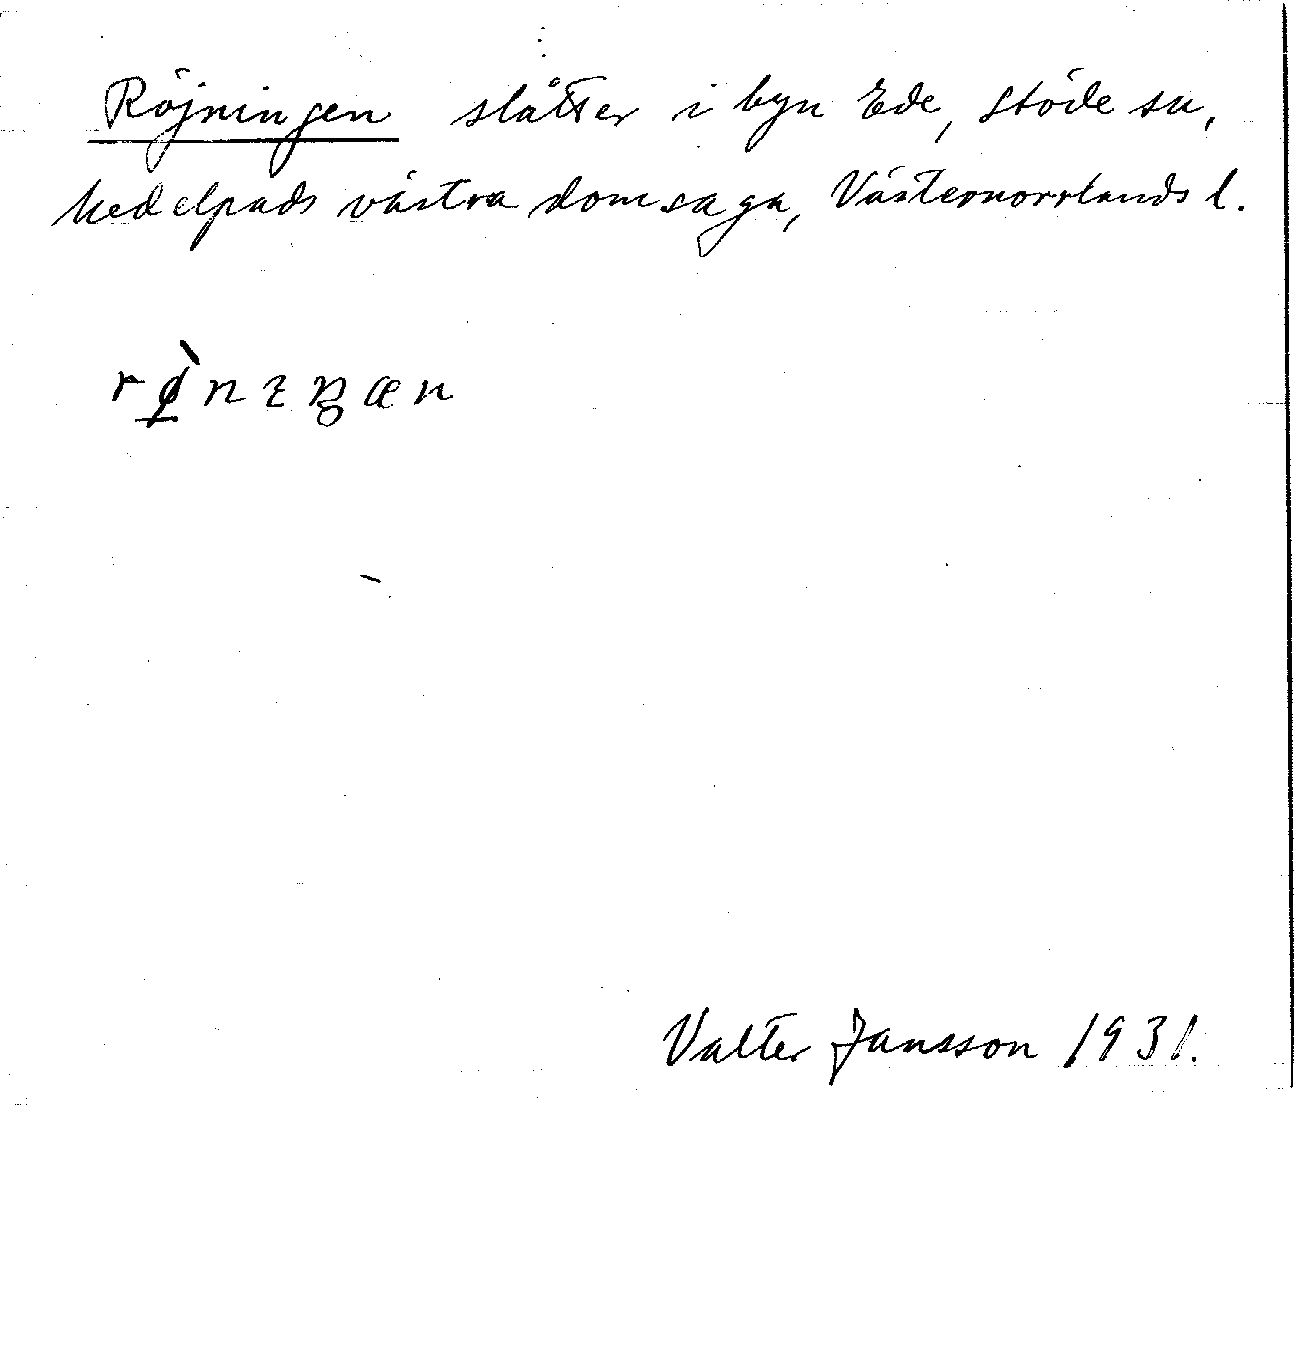 Röjningen slåtter i byn Ede, Stöde sn,
Medelpads västra domsaga, Västernorrlands l.
rø̀nɪŋæn
Valter Jansson 1931.